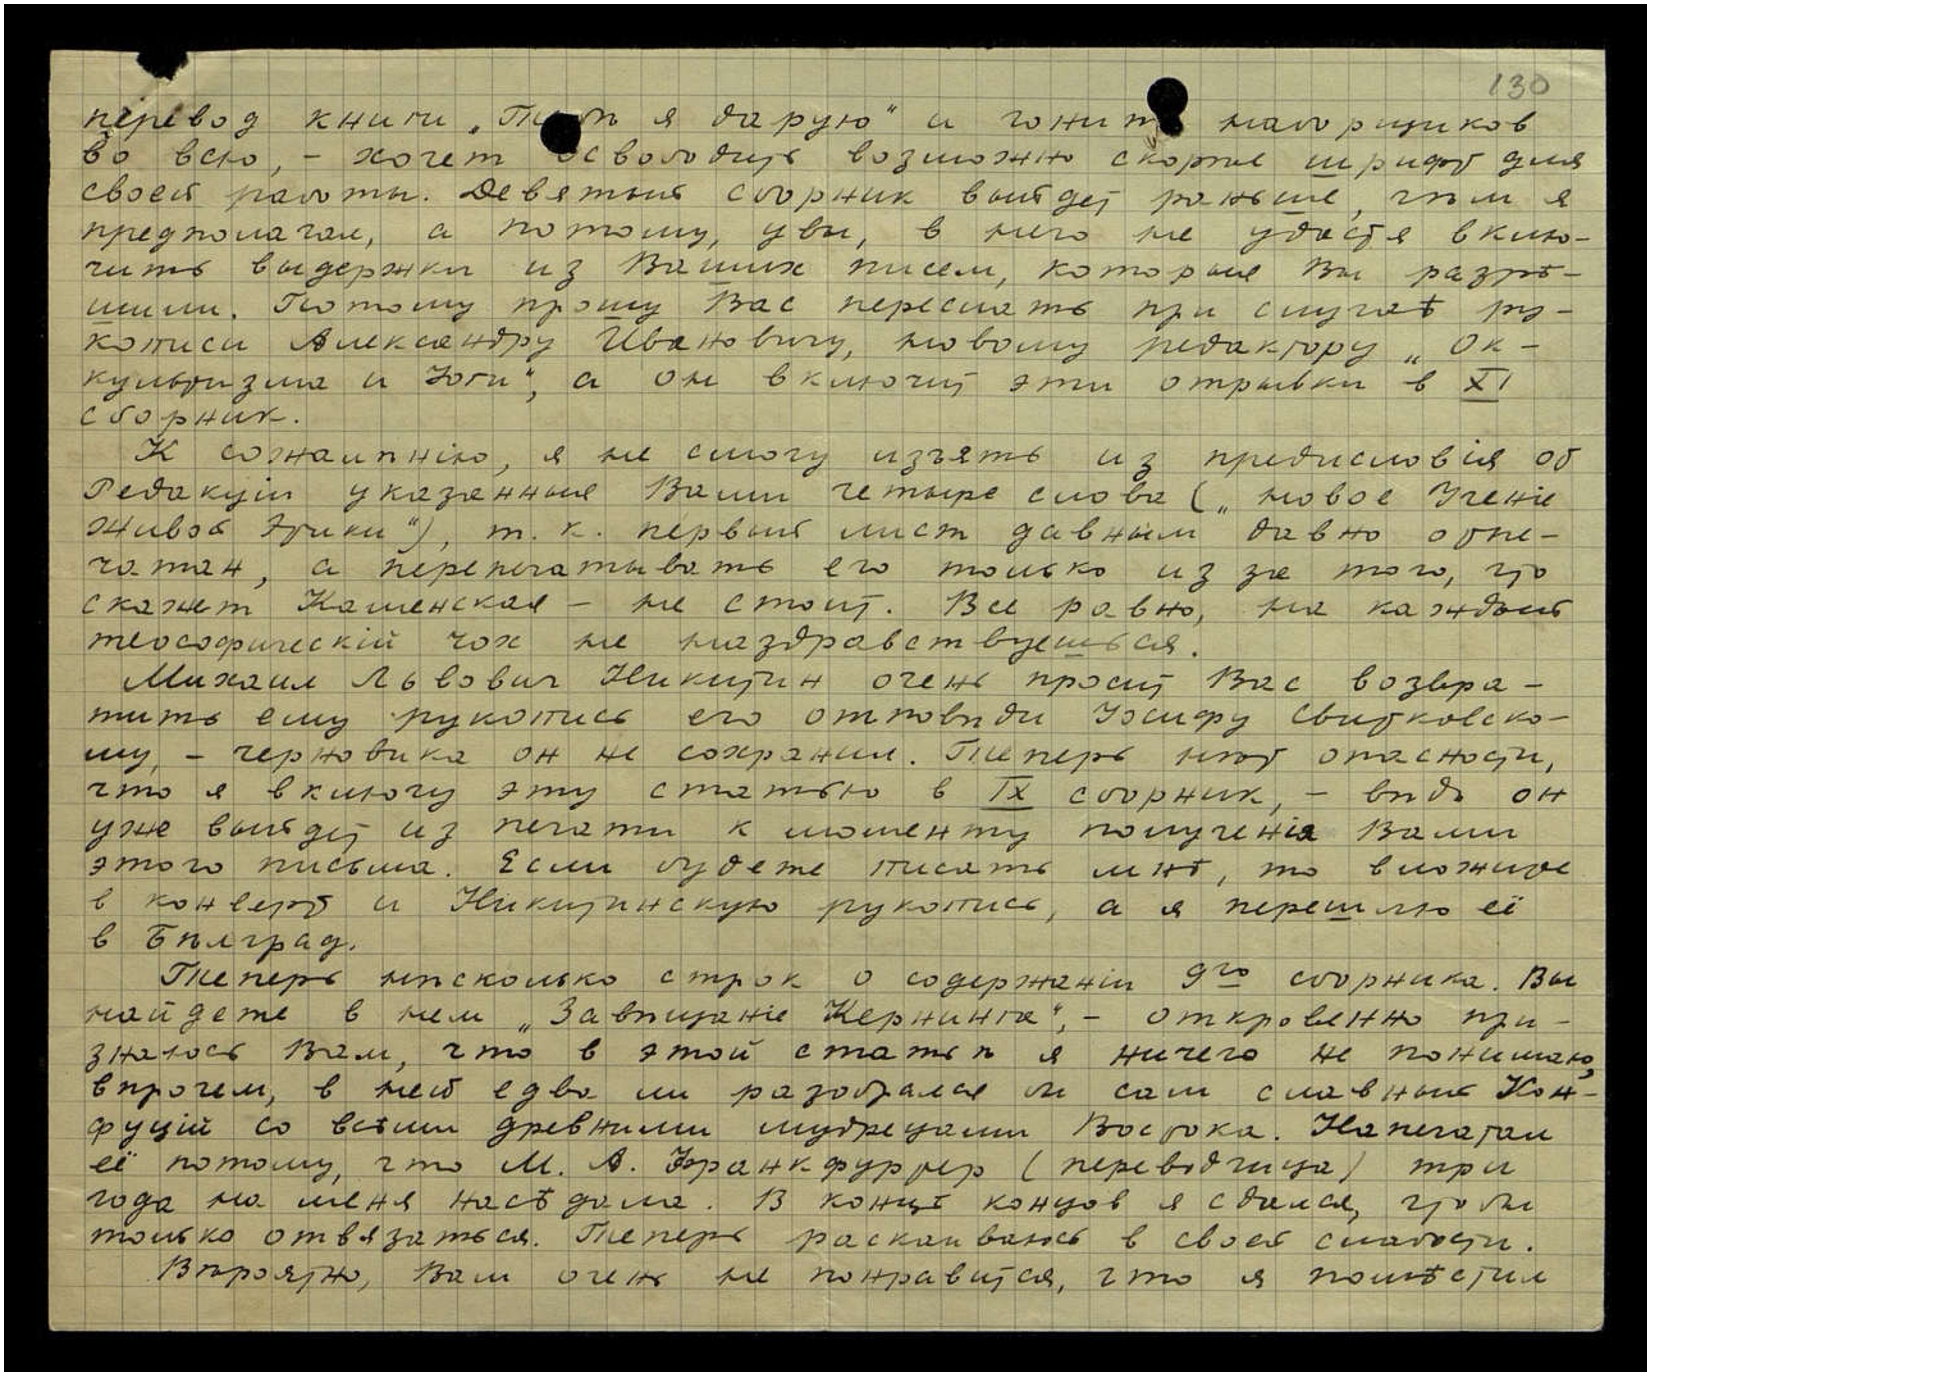 130
перевод книги „Тебѣ я дарую“ и гонит наборщиков
во всю, – хочет освободить возможно скорѣе шрифт для
своей работы. Девятый сборник выйдет раньше, чѣм я
предполагал, а потому, увы, в него не удастся вклю-
чить выдержки из Ваших писем, которые Вы разрѣ-
шили. Потому прошу Вас переслать при случаѣ ру-
кописи Александру Ивановичу, новому редактору „Ок-
культизма и Йоги“, а он включит эти отрывки в XI
сборник.
К сожалѣнію, я не смогу изъять из предисловія от
Редакціи указанные Вами четыре слова („новое Ученіе
Живой Этики“), т. к. первый лист давным давно отпе-
чатан, а перепечатывать его только из за того, что
скажет Каменская – не стоит. Все равно, на каждый
теософическій чох не наздравствуешься.
Михаил Львович Никитин очень просит Вас возвра-
тить ему рукопись его отповѣди Иосифу Свитковско-
му, – черновика он не сохранил. Теперь нѣт опасности,
что я включу эту статью в IX сборник, – вѣдь он
уже выйдет из печати к моменту полученія Вами
этого письма. Если будете писать мнѣ, то вложите
в конверт и Никитинскую рукопись, а я перешлю её
в Бѣлград.
Теперь нѣсколько строк о содержаніи 9го сборника. Вы
найдете в нем „Завѣщаніе Кернинга“, – откровенно при-
знаюсь Вам, что в этой статьѣ я ничего не понимаю,
впрочем, в ней едва ли разобрался бы сам славный Кон-
фуцій со всѣми древними мудрецами Востока. Напечатал
её потому, что М. А. Франкфуртер (переводчица) три
года на меня насѣдала. В концѣ концов я сдался, чтобы
только отвязаться. Теперь раскаиваюсь в своей слабости.
Вѣроятно, Вам очень не понравится, что я помѣстил